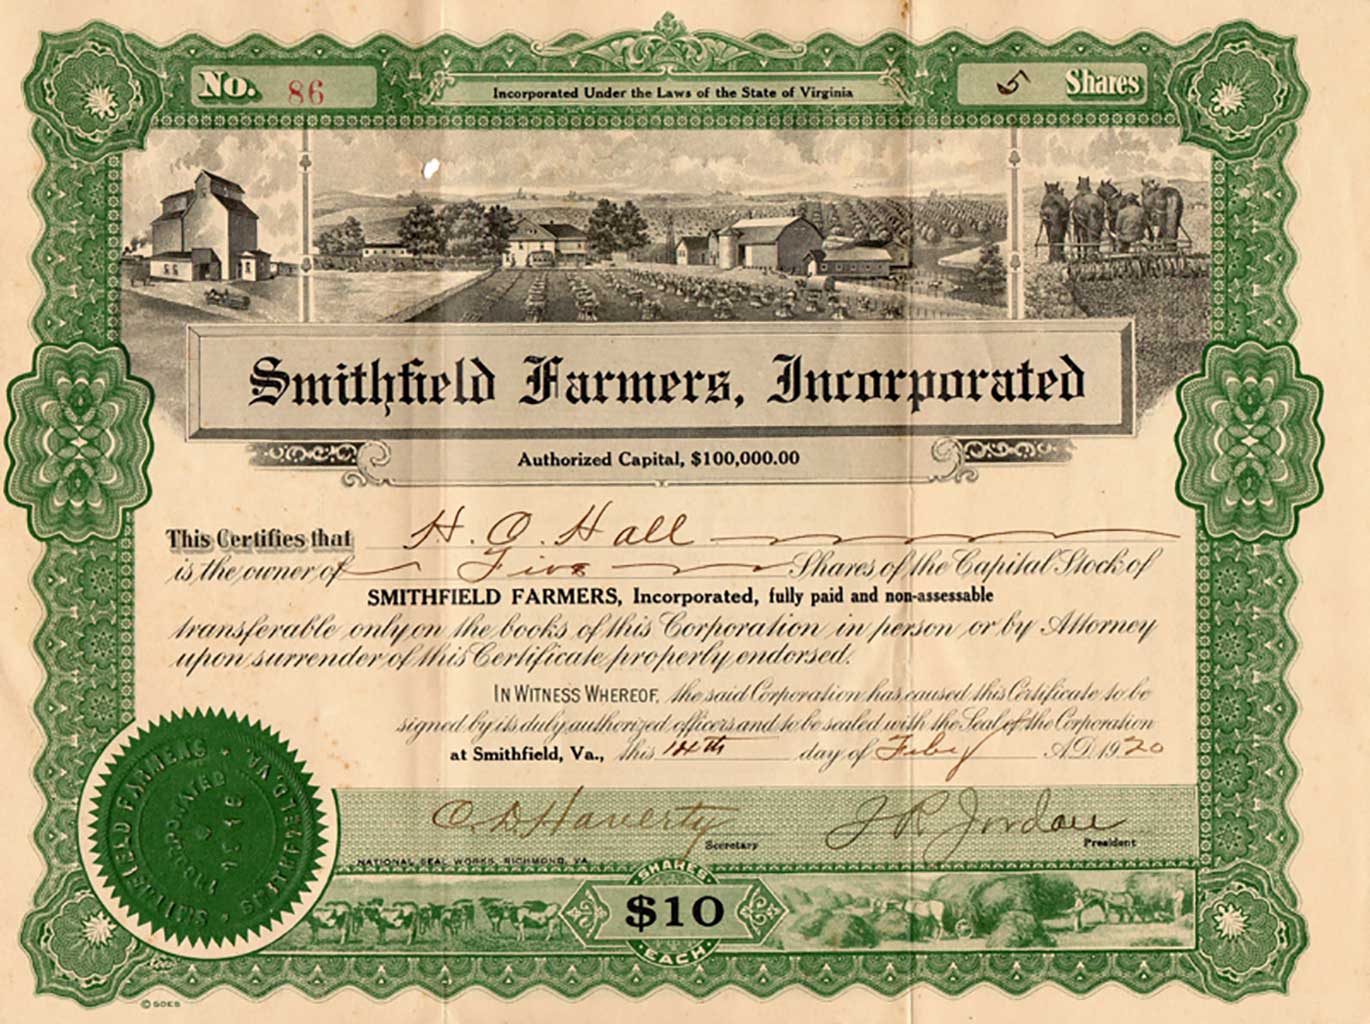 No. 86
Incorporated Under the Laws of the State of Virginia
5 Shares
Smithfield Farmers, Incorporated
Authorized Capital, $100,000.00
This Certifies that H. O. Hall
is the owner of Five Shares of the Capital Stock of
SMITHFIELD FARMERS, Incorporated, fully paid and non-assessable
transferable only on the books of this Corporation in person or by Attorney
upon surrender of this Certificate properly endorsed.
IN WITNESS WHEREOF, the said Corporation has caused this Certificate to be
signed by its duly authorized officers and to be sealed with the Seal of the Corporation
at Smithfield, Va., this 14th day of Feby A.D. 1920
O. D. Haverty J R Jordan
Secretary President
NATIONAL SEAL WORKS, RICHMOND, VA.
SMITHFIELD FARMERS
SMITHFIELD, VA.
INCORPORATED
SHARES
$10
EACH
© GOES